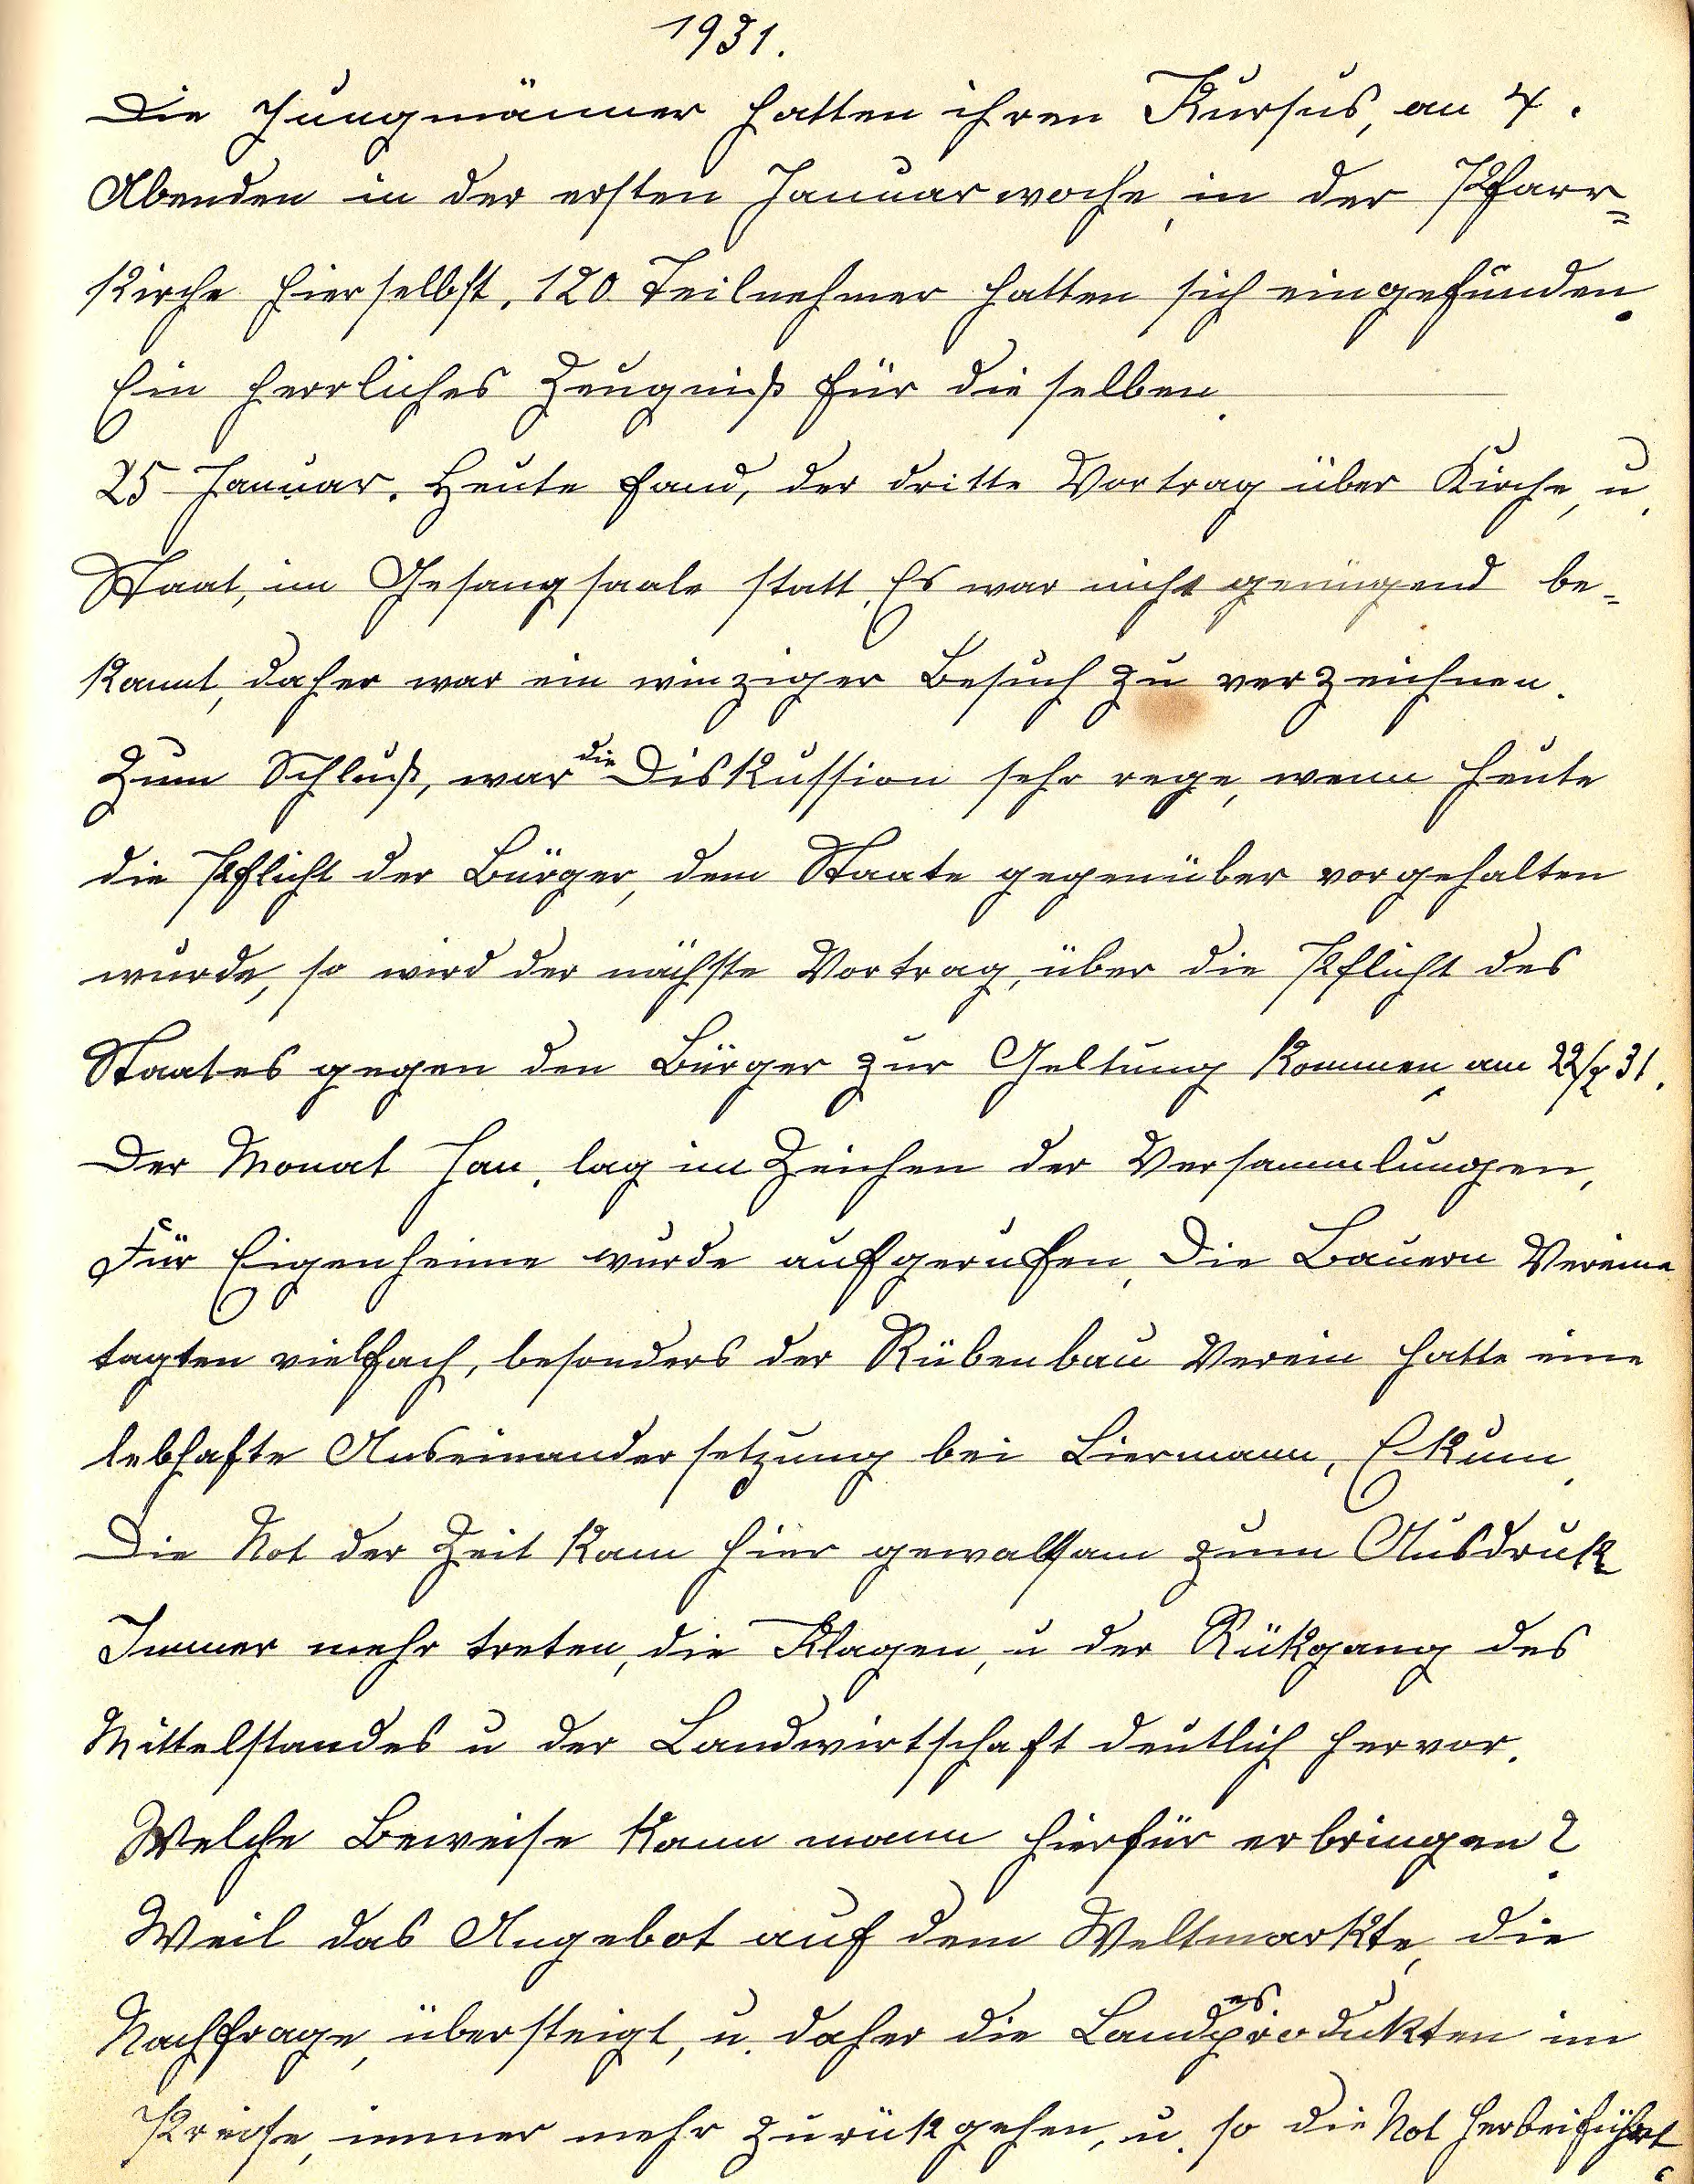 1931.
Die Jungmänner hatten ihren Kursus, an 4.
Abenden in der ersten Januarwoche, in der Pfarr=
kirche hierselbst. 120 Teilnehmer hatten sich eingefunden.
Ein herrliches Zeugniß für dieselben.
25 Januar. Heute fand, der dritte Vortrag über Kirche, u.
Staat, im Gesangsaale statt. Es war nicht genügend be=
kannt, daher war ein winziger Besuch zu verzeichnen.
Zum Schluß, war die Diskussion sehr rege, wenn heute
die Pflicht der Bürger, dem Staate gegenüber vorgehalten
wurde, so wird der nächste Vortrag, über die Pflicht des
Staates gegen den Bürger zur Geltung kommen, am 22/2 31.
Der Monat Jan. lag im Zeichen der Versammlungen,
Für Eigenheime wurde aufgerufen, Die Bauern Vereine
tagten vielfach, besonders der Rübenbau Verein hatte eine
lebhafte Auseinandersetzung bei Liermann, Ekum.
Die Not der Zeit kam hier gewaltsam zum Ausdruk
Immer mehr treten, die Klagen, u der Rükgang des
Mittelstandes u der Landwirtschaft deutlich hervor.
Welche Beweise kann mann hierfür erbringen?
Weil das Angebot auf dem Weltmarkte, die
Nachfrage, übersteigt, u. daher die Landesprodukten im
Preise, immer mehr zurükgehen, u. so die Not herbeiführt.